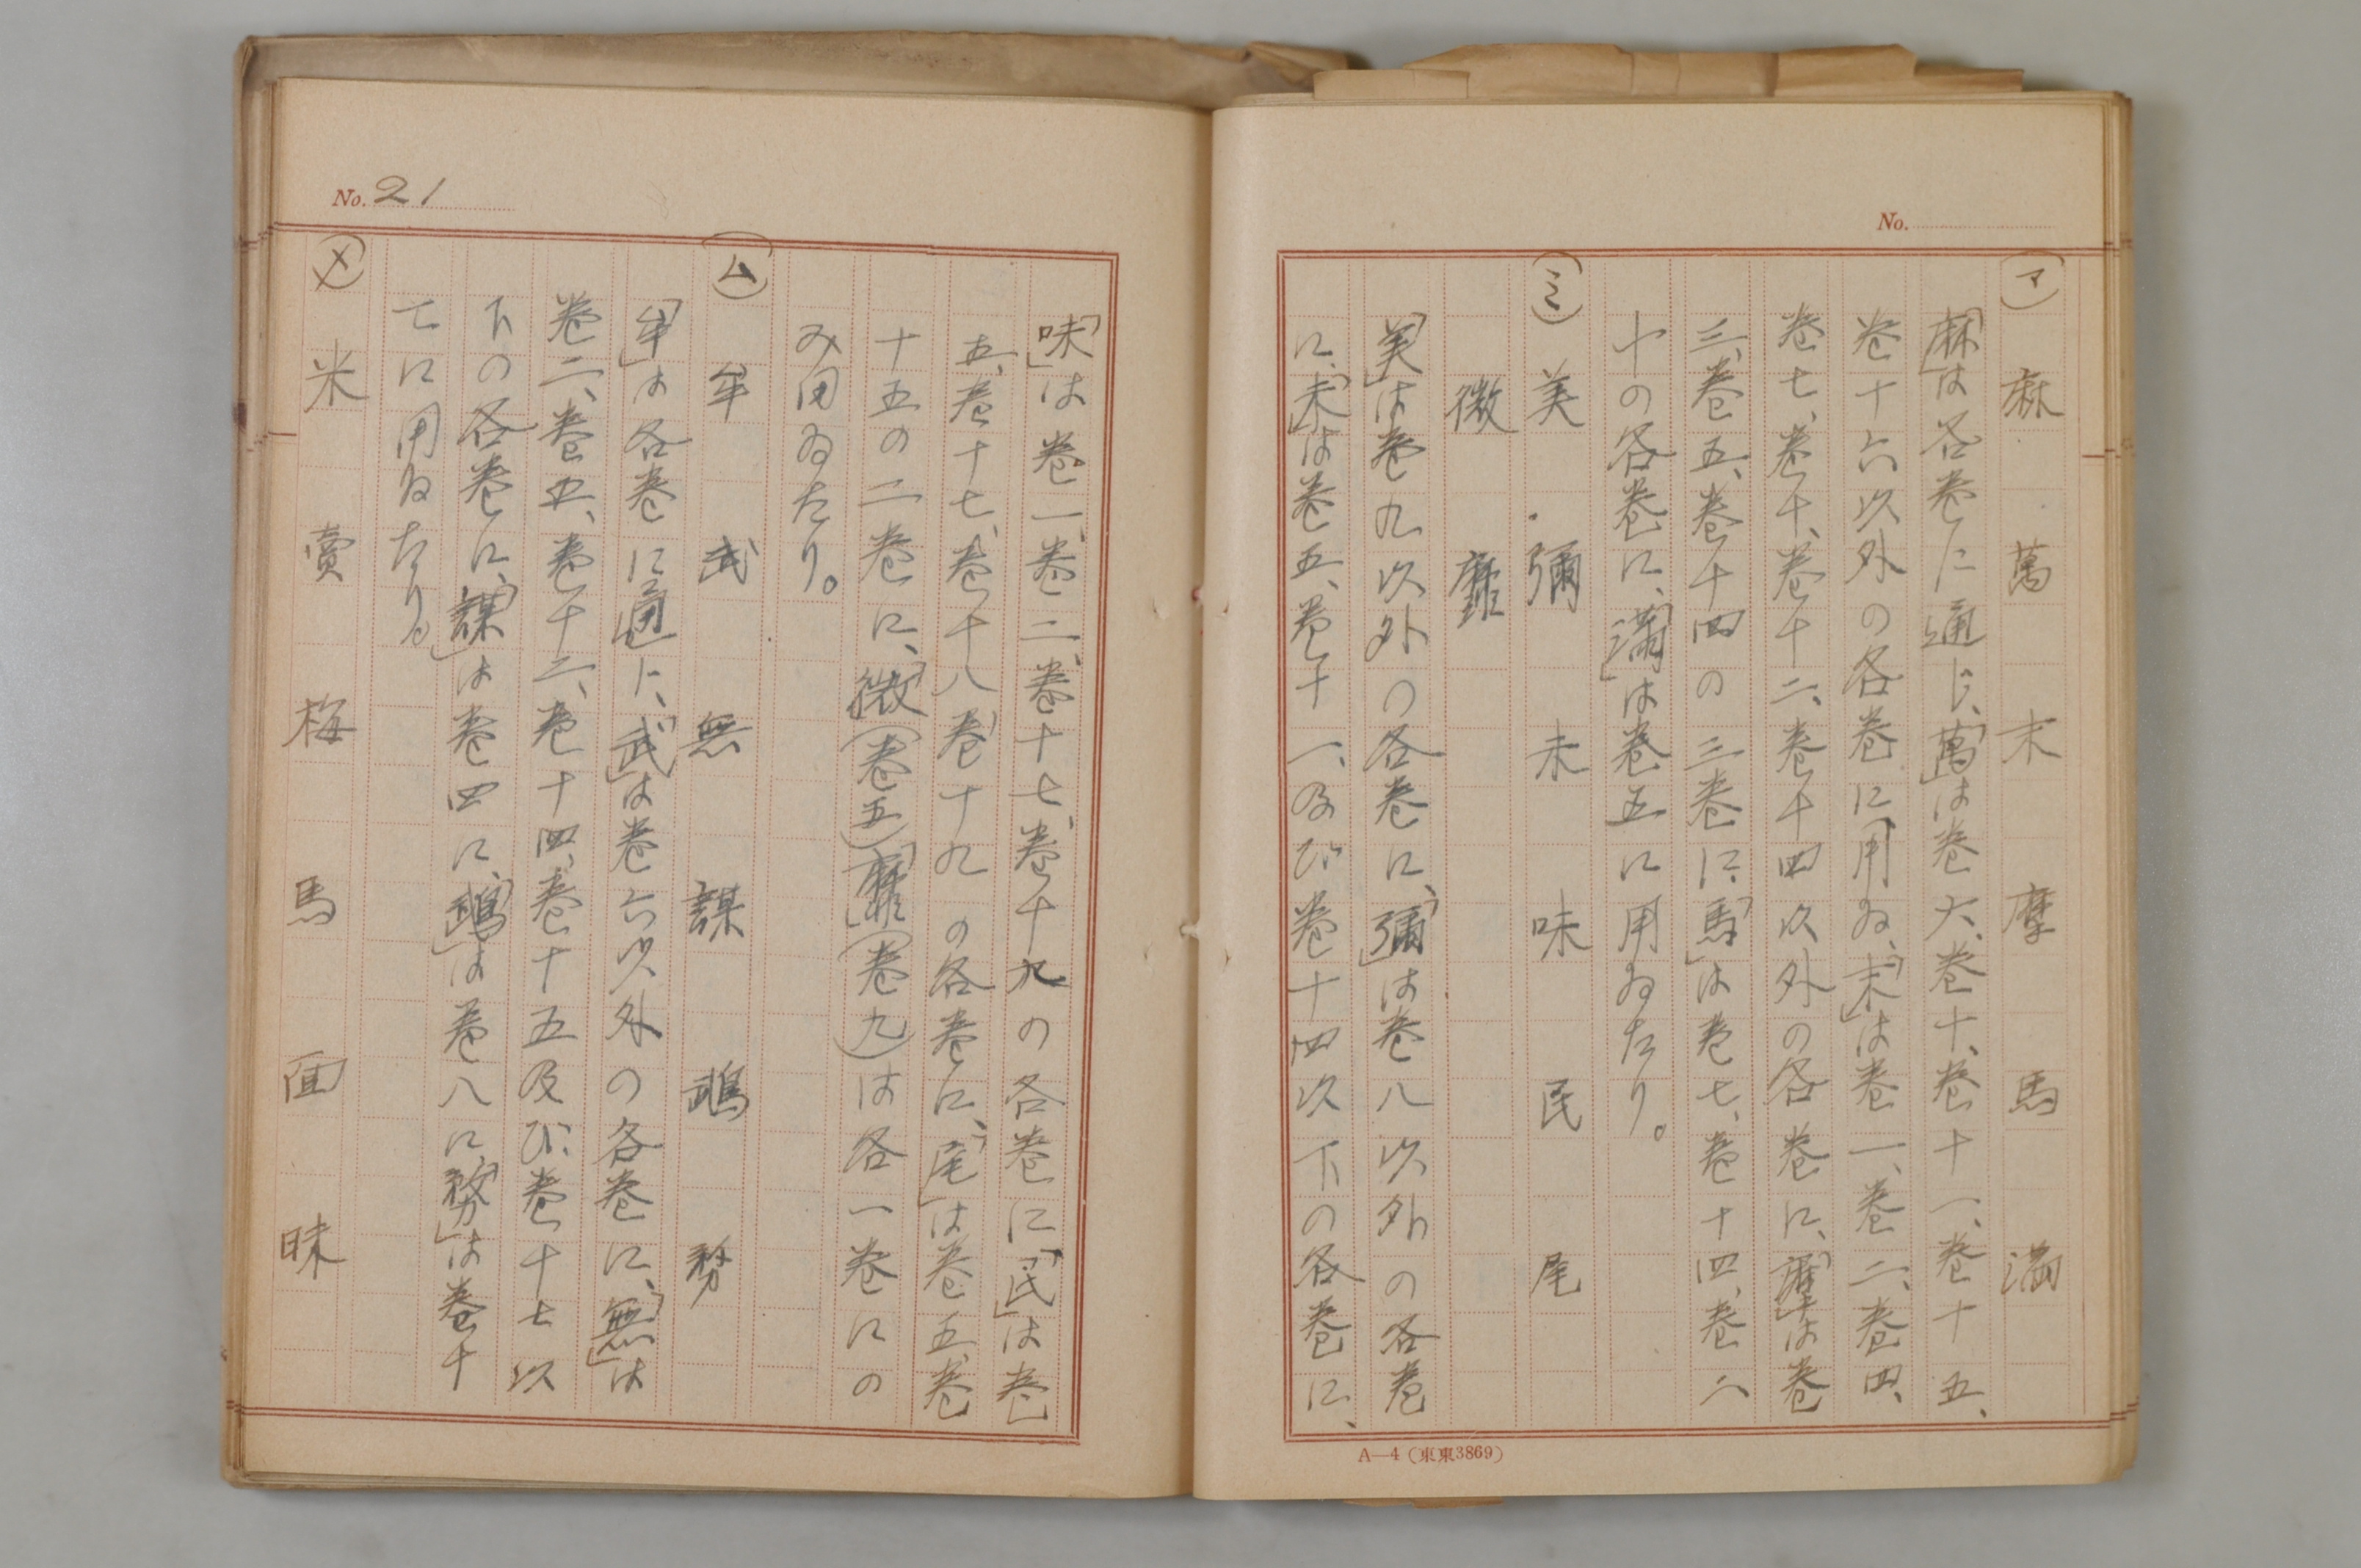 No.
(マ) 麻 萬 末 摩 馬 満
「麻」は各巻に通じ、「萬」は巻六、巻十、巻十一、巻十五、
巻十六以外の各巻に用ゐ、「末」は巻一、巻二、巻四、
巻七、巻十、巻十二、巻十四以外の各巻に、「摩」は巻
三、巻五、巻十四の三巻に、「馬」は巻七、巻十四、巻二
十の各巻に、「満」は巻五に用ゐたり。
(ミ) 美 彌 未 味 民 尾
微 靡
「美」は巻九以外の各巻に、「彌」は巻八以外の各巻
に、「未」は巻五、巻十一、及び巻十四以下の各巻に、
A—4 (東東3869)
No. 21
「味」は巻一、巻二、巻十七、巻十九の各巻に「民」は巻
五、巻十七、巻十八、巻十九の各巻に、「尾」は巻五、巻
十五の二巻に、「微」(巻五)「靡」(巻九)は各一巻にの
み用ゐたり。
(ム) 牟 武 無 謀 鵡 務
「牟」は各巻に通じ、「武」は巻六以外の各巻に、「無」は
巻二、巻五、巻十二、巻十四、巻十五及び巻十七以
下の各巻に、「謀」は巻四に、「鵡」は巻八に、「務」は巻十
七に用ゐたり。
(メ) 米 賣 梅 馬 面 昧